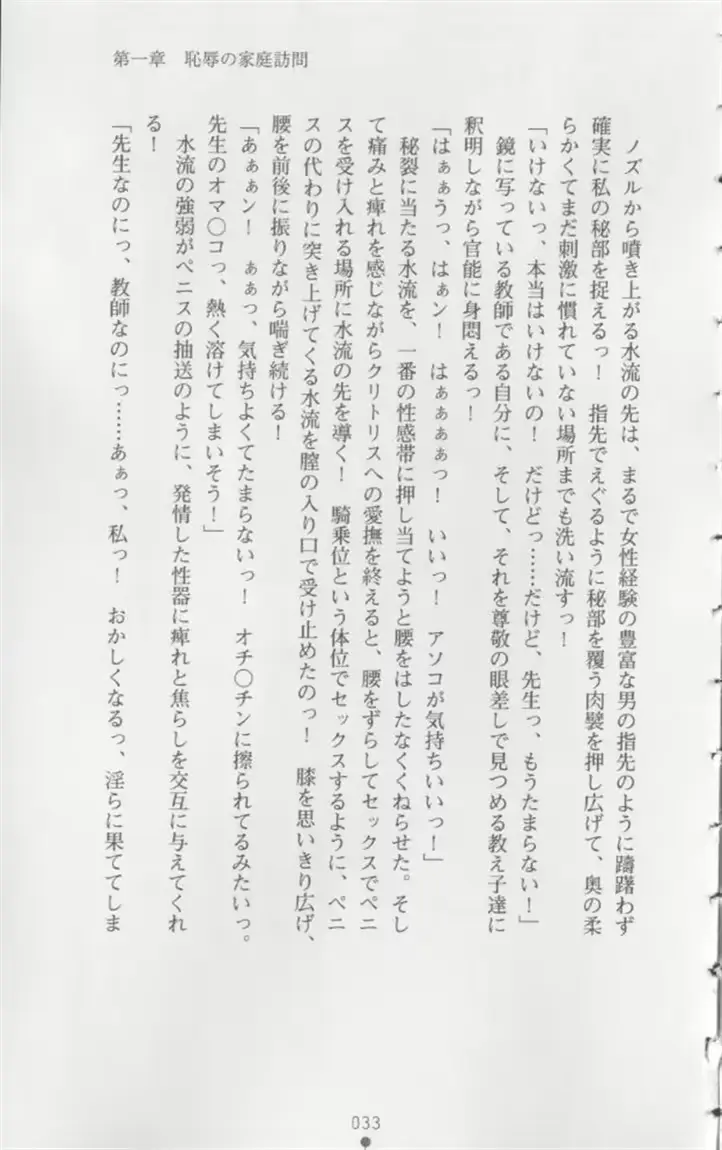 第一章　恥辱の家庭訪問
　ノズルから噴き上がる水流の先は、まるで女性経験の豊富な男の指先のように躊躇わず
確実に私の秘部を捉えるっ！　指先でえぐるように秘部を覆う肉襞を押し広げて、奥の柔
らかくてまだ刺激に慣れていない場所までも洗い流すっ！
「いけないっ、本当はいけないの！　だけどっ……だけど、先生っ、もうたまらない！」
　鏡に写っている教師である自分に、そして、それを尊敬の眼差しで見つめる教え子達に
釈明しながら官能に身悶えるっ！
「はぁぁうっ、はぁン！　はぁぁぁっ！　いいっ！　アソコが気持ちいいっ！」
　秘裂に当たる水流を、一番の性感帯に押し当てようと腰をはしたなくくねらせた。そし
て痛みと痺れを感じながらクリトリスへの愛撫を終えると、腰をずらしてセックスでペニ
スを受け入れる場所に水流の先を導く！　騎乗位という体位でセックスするように、ペニ
スの代わりに突き上げてくる水流を膣の入り口で受け止めたのっ！　膝を思いきり広げ、
腰を前後に振りながら喘ぎ続ける！
「あぁぁン！　ぁぁっ、気持ちよくてたまらないっ！　オチ〇チンに擦られてるみたいっ。
先生のオマ〇コっ、熱く溶けてしまいそう！」
　水流の強弱がペニスの抽送のように、発情した性器に痺れと焦らしを交互に与えてくれ
る！
「先生なのにっ、教師なのにっ……あぁっ、私っ！　おかしくなるっ、淫らに果ててしま
033